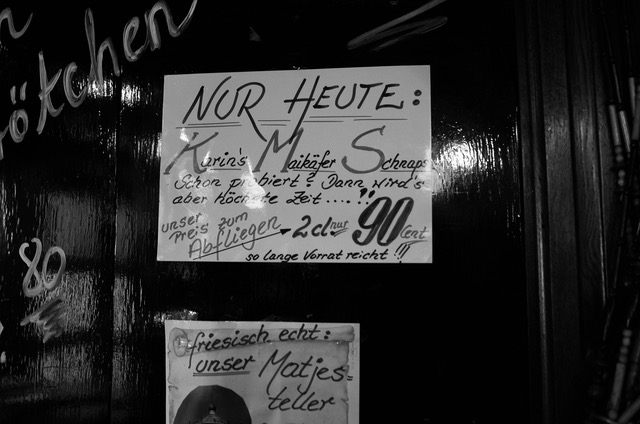 ötchen
80
NUR HEUTE:
Karin's Maikäfer Schnaps
Schon probiert? Dann wird's
aber höchste Zeit....!!
unser Preis zum Abfliegen 2cl nur 90 Cent
so lange Vorrat reicht!!!
friesisch echt:
unser Matjes=
teller